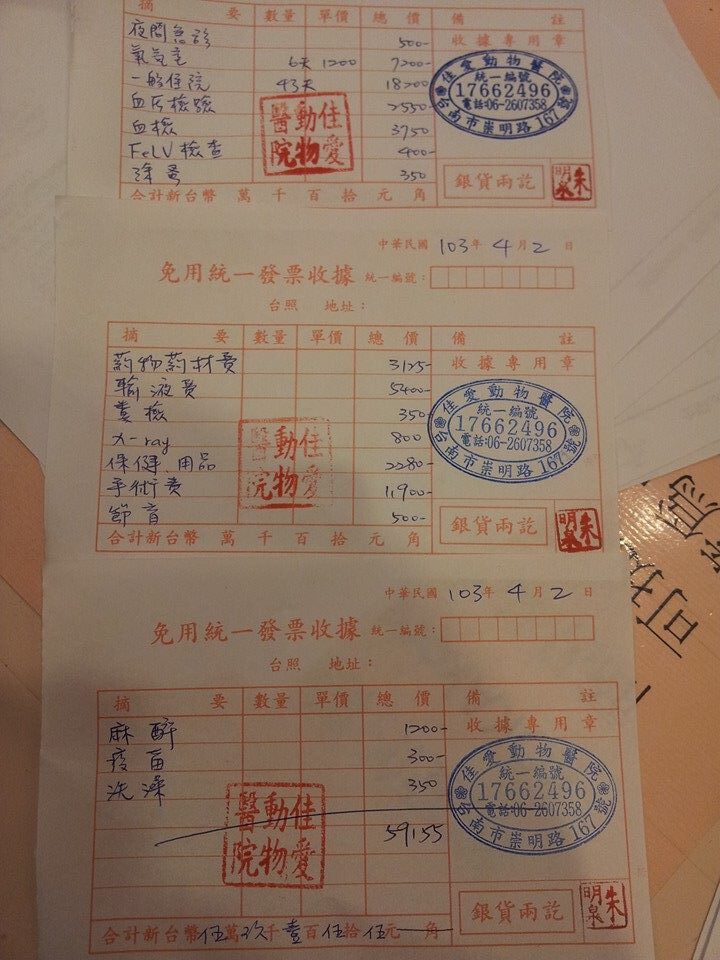 摘 要 數量 單價 總 價 備 註
夜間急診 500- 收據專用章
氧氣室 6天 1200 7200-
一般住院 43天 18200
血液檢驗 2550-
血檢 3750
FeLV 檢查 400-
除蚤 350
佳愛動物醫院
統一編號
17662496
電話:06-2607358
台南市崇明路167號
佳愛動物醫院
銀貨兩訖
朱明泉
合計新台幣 萬 千 百 拾 元 角
中華民國 103年 4月 2日
免用統一發票收據 統一編號:
台照 地址:
摘 要 數量 單價 總 價 備 註
藥物葯材費 3125- 收據專用章
輸液費 5400-
糞檢 350-
X-ray 800
保健用品 2280-
手術費 11900-
節育 500-
佳愛動物醫院
統一編號
17662496
電話:06-2607358
台南市崇明路167號
佳愛動物醫院
銀貨兩訖
朱明泉
合計新台幣 萬 千 百 拾 元 角
可
中華民國 103年 4月 2日
免用統一發票收據 統一編號:
台照 地址:
摘 要 數量 單價 總 價 備 註
麻醉 1200- 收據專用章
疫苗 300-
洗澡 350
59155
佳愛動物醫院
統一編號
17662496
電話:06-2607358
台南市崇明路167號
佳愛動物醫院
銀貨兩訖
朱明泉
合計新台幣伍萬玖千壹百伍拾伍元 角